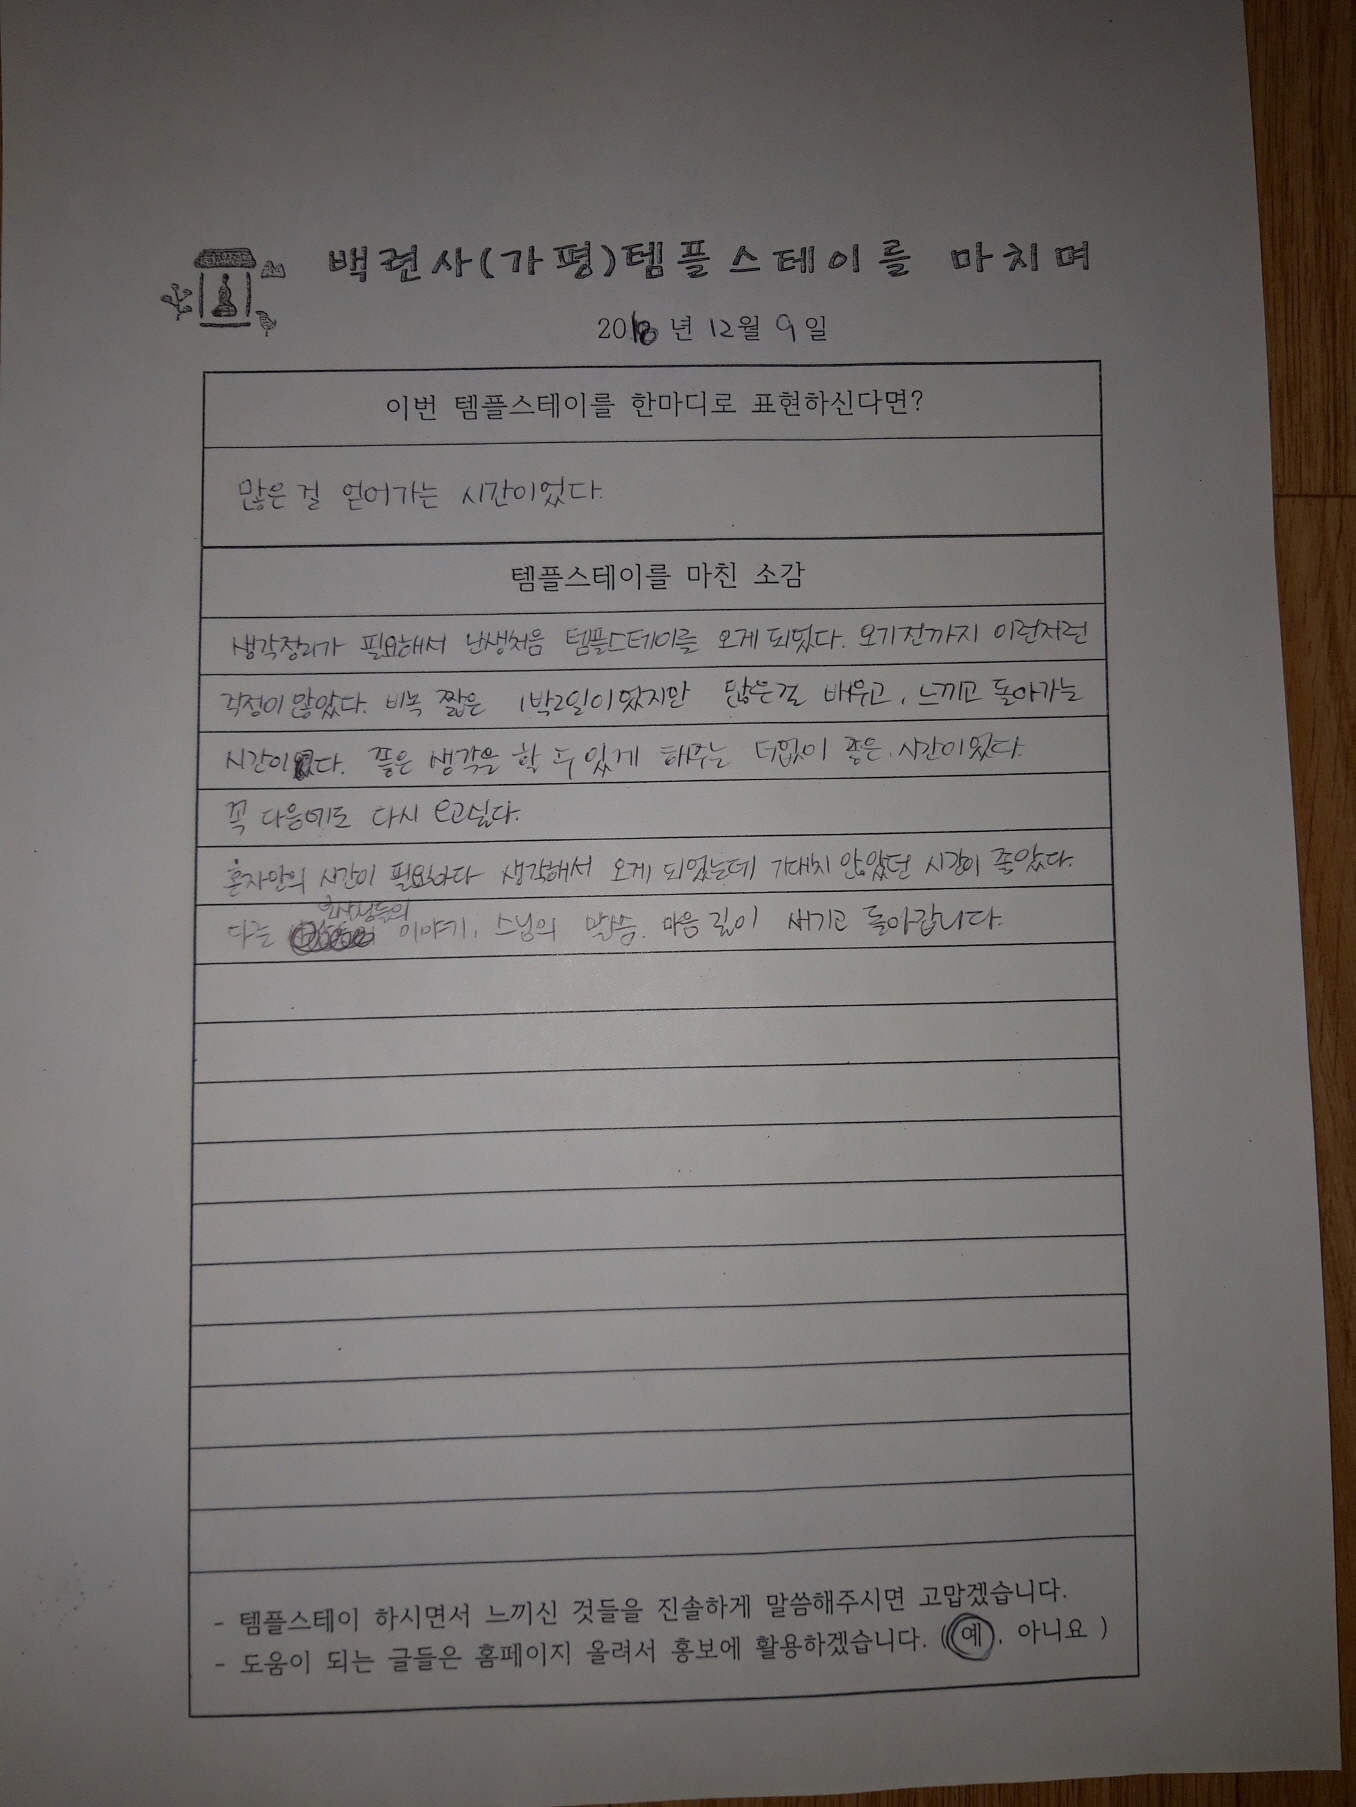 백련사(가평)템플스테이를 마치며
2018년 12월 9일
이번 템플스테이를 한마디로 표현하신다면?
많은 걸 얻어가는 시간이었다.
템플스테이를 마친 소감
생각정리가 필요해서 난생처음 템플스테이를 오게 되었다. 오기전까지 이런저런
걱정이 많았다. 비록 짧은 1박2일이었지만 많은걸 배우고, 느끼고 돌아가는
시간이었다. 좋은 생각을 할 수 있게 해주는 더없이 좋은 시간이었다.
꼭 다음에도 다시 오고싶다.
혼자만의 시간이 필요하다 생각해서 오게 되었는데 기대치 않았던 시간이 좋았다.
다는 이야기, 스님의 말씀. 마음 깊이 새기고 돌아갑니다.
- 템플스테이 하시면서 느끼신 것들을 진솔하게 말씀해주시면 고맙겠습니다.
- 도움이 되는 글들은 홈페이지 올려서 홍보에 활용하겠습니다. (예, 아니요 )